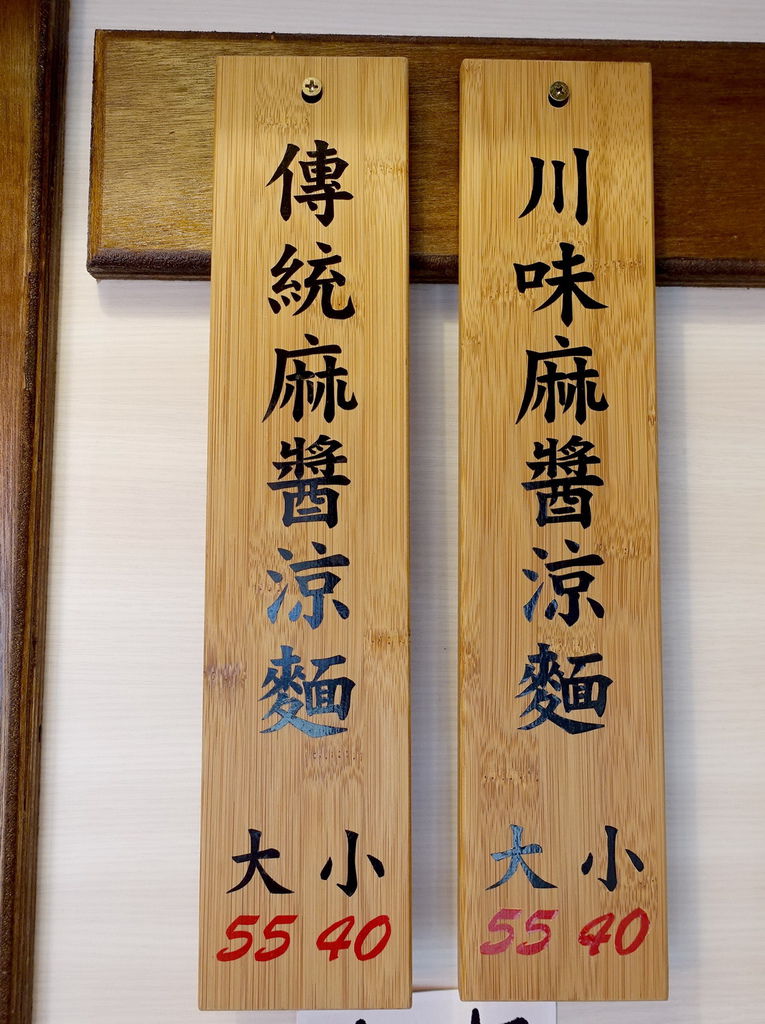 傳統麻醬涼麵
大 小
55 40
川味麻醬涼麵
大 小
55 40